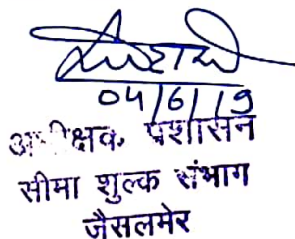 04/6/19
अधीक्षक, प्रशासन
सीमा शुल्क संभाग
जैसलमेर